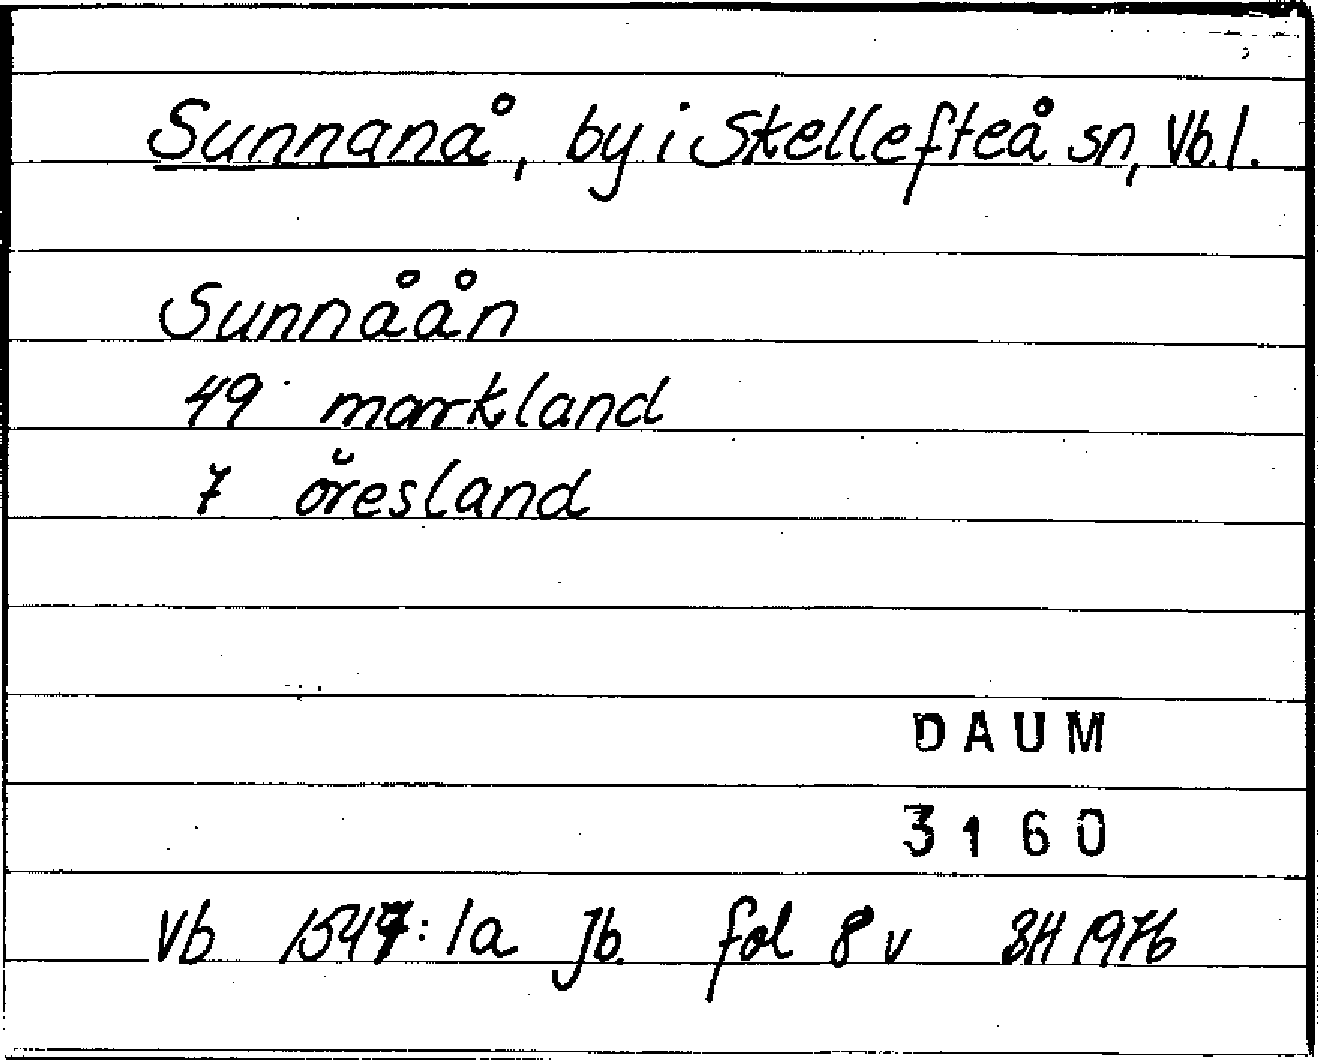 Sunnanå, by i Skellefteå sn, Vb.l.
Sunnåån
49 markland
7 öresland
DAUM
3160
Vb 1547:1a Jb. fol 8 v BH 1976